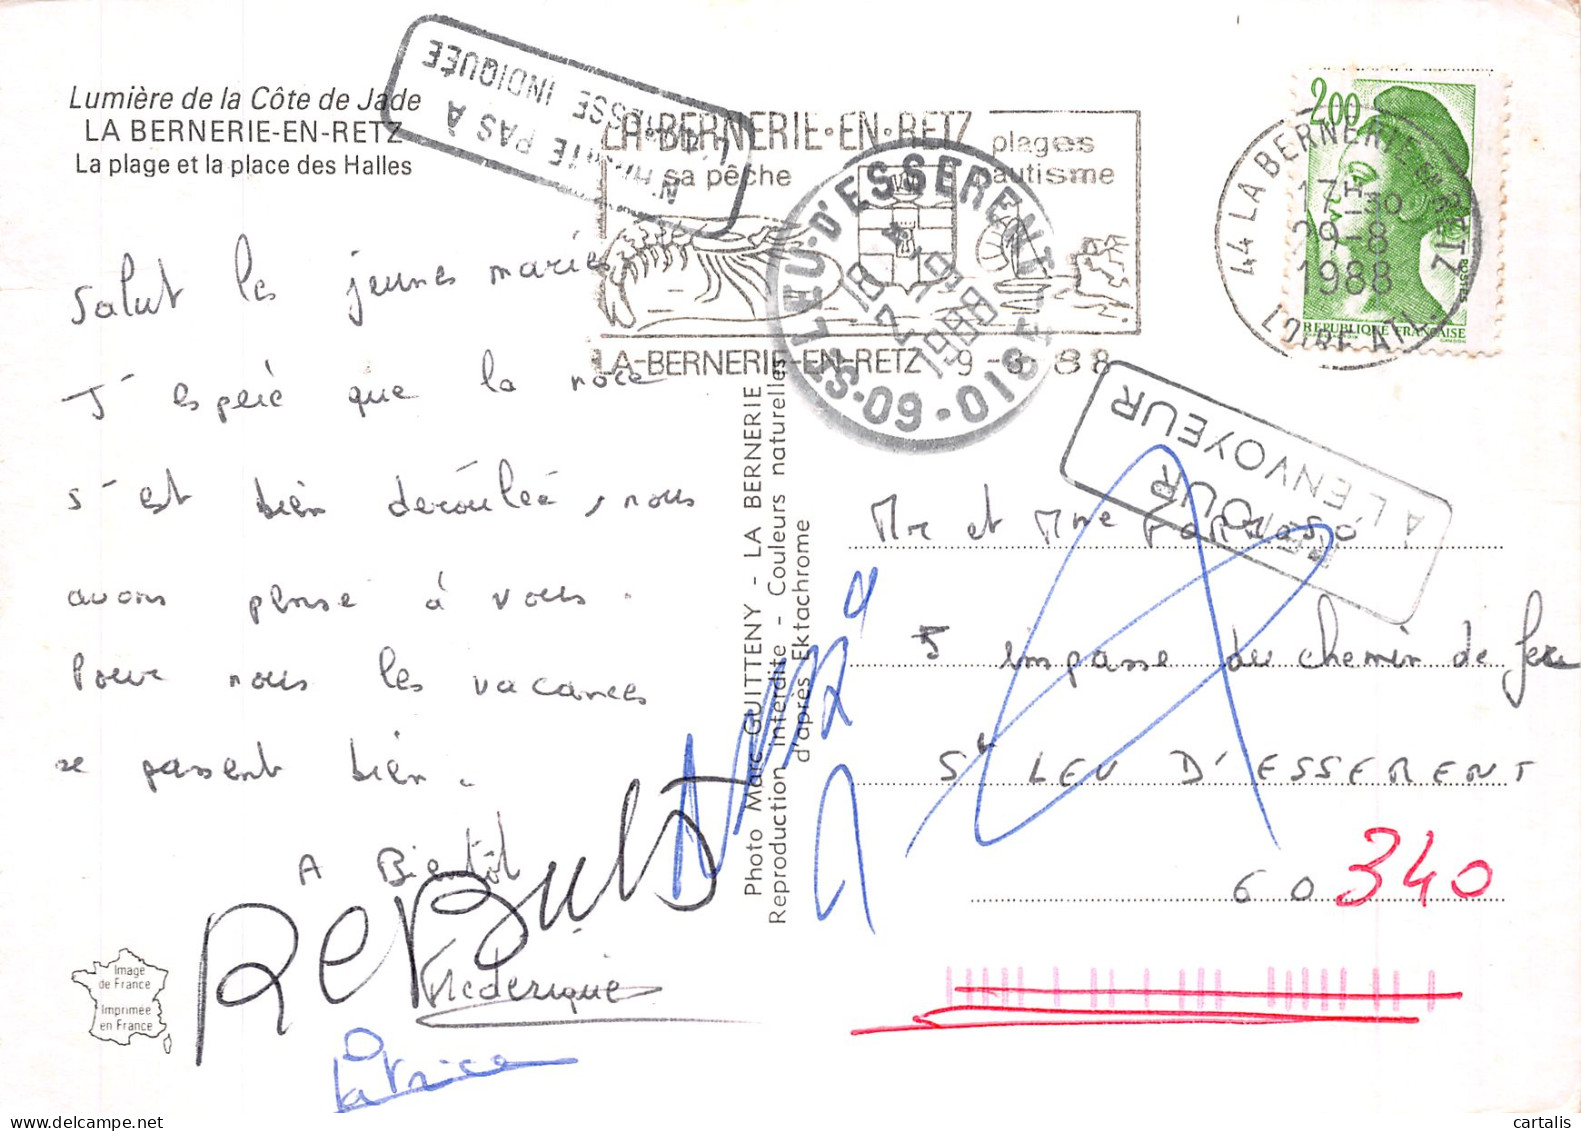 Lumière de la Côte de Jade
LA BERNERIE-EN-RETZ
La plage et la place des Halles
N'HABITE PAS À
L'ADRESSE INDIQUÉE
LA BERNERIE·EN·RETZ
sa pêche
plages
nautisme
LA-BERNERIE-EN-RETZ 29-8-88
ST-LEU-D'ESSERENT
60-OISE
1988
44 LA BERNERIE EN RETZ
17H30
29-8
1988
LOIRE ATL.
2,00
REPUBLIQUE FRANÇAISE
POSTES
GANDON
RETOUR
À L'ENVOYEUR
Salut les jeunes mariés
J'espère que la noce
s'est bien déroulée, nous
avons pensé à vous.
Pour nous les vacances
se passent bien.
A Bientôt
Rebut
Frédérique
Patrice
Image
de France
Imprimée
en France
Photo Marc GUITTENY - LA BERNERIE
Reproduction interdite - Couleurs naturelles
d'après Ektachrome
Mr et Mme
5 impasse du chemin de fer
St LEU D'ESSERENT
60 340